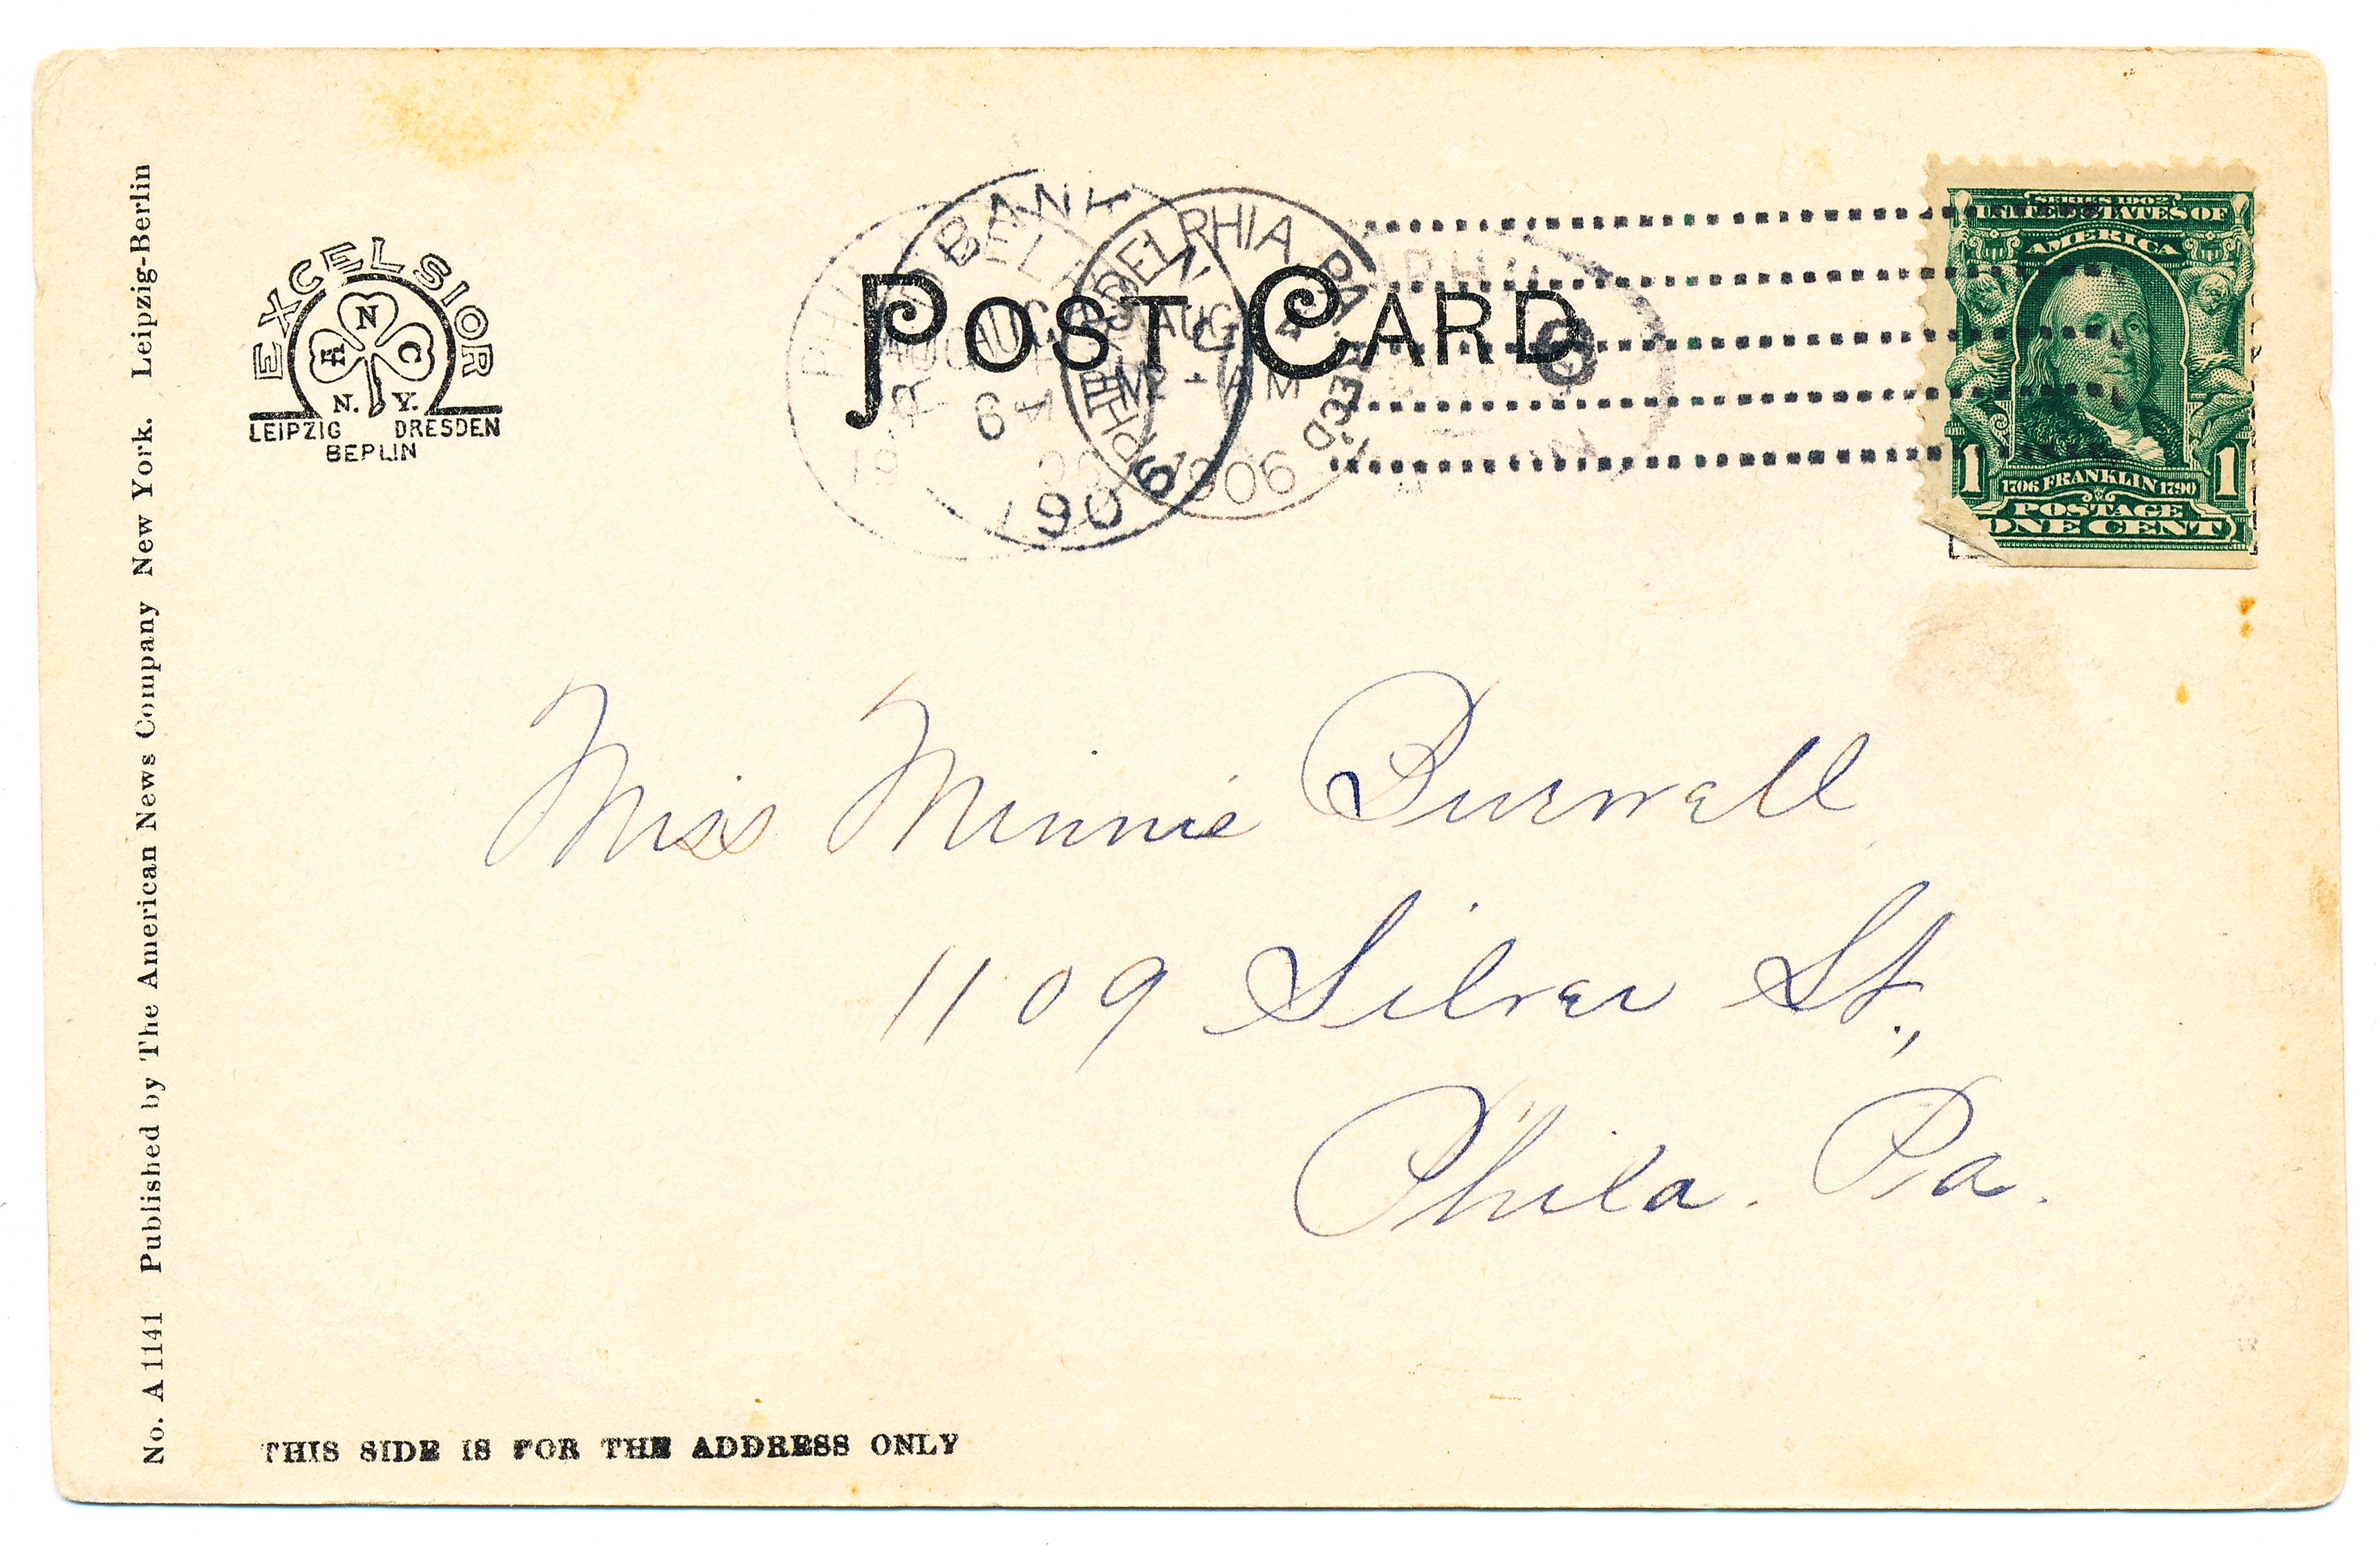 No. A 1141 Published by The American News Company New York. Leipzig-Berlin
EXCELSIOR
A N C
N. Y.
LEIPZIG DRESDEN
BERLIN
POST CARD
BANK
N.J.
AUG
6
1906
PHILADELPHIA, PA. REC'D
AUG
AM
1906
SERIES 1902
UNITED STATES OF
AMERICA
1 1
1706 FRANKLIN 1790
POSTAGE
ONE CENT
Miss Minnie Burwell
1109 Silver St.,
Phila. Pa.
THIS SIDE IS FOR THE ADDRESS ONLY